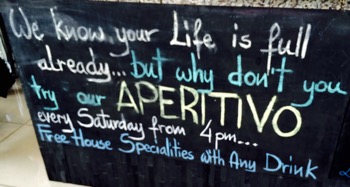 We know your Life is full
already... but why don't you
try our APERITIVO
every Saturday from 4pm...
Free House Specialities with Any Drink